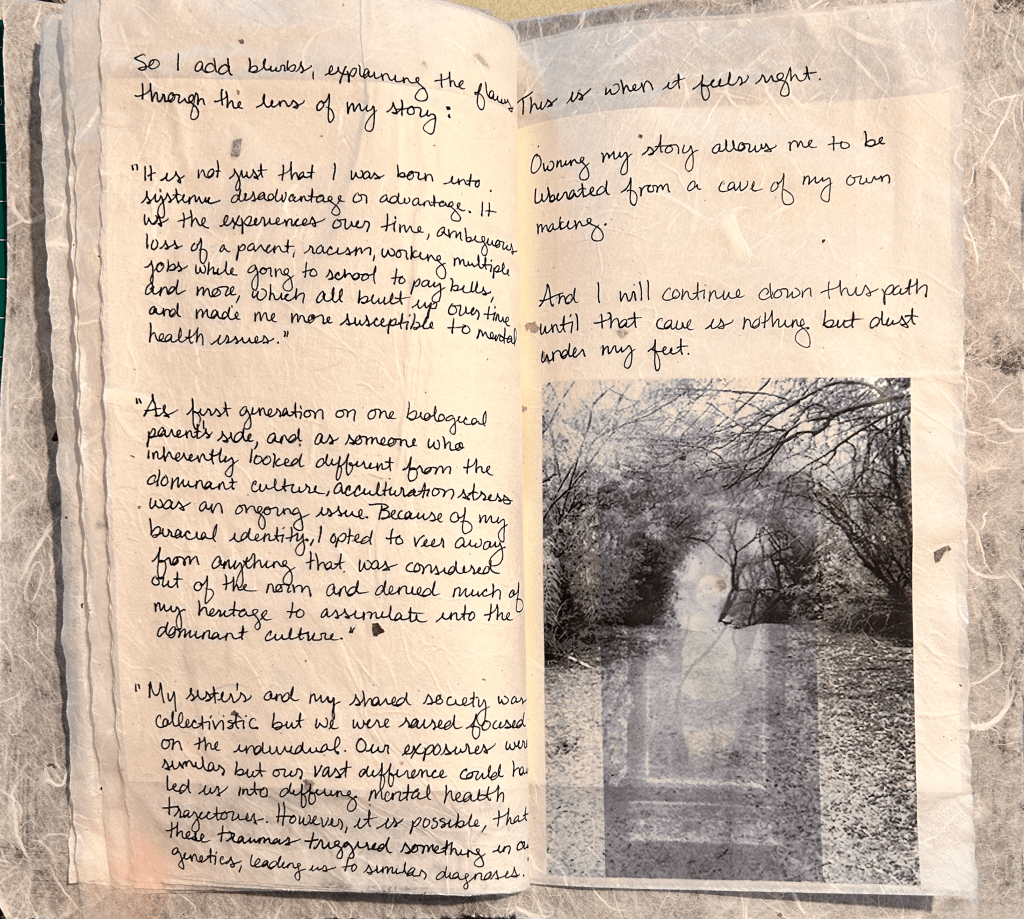 So I add blurbs, explaining the flaws
through the lens of my story:
"It is not just that I was born into
systemic disadvantage or advantage. It
is the experiences over time, ambiguous
loss of a parent, racism, working multiple
jobs while going to school to pay bills,
and more, which all built up over time
and made me more susceptible to mental
health issues."
"As first generation on one biological
parent's side, and as someone who
inherently looked different from the
dominant culture, acculturation stress
was an ongoing issue. Because of my
biracial identity, I opted to veer away
from anything that was considered
out of the norm and denied much of
my heritage to assimilate into the
dominant culture."
"My sister's and my shared society was
collectivistic but we were raised focused
on the individual. Our exposures were
similar but our vast difference could ha
led us into differing mental health
trajectories. However, it is possible, that
these traumas triggered something in o
genetics, leading us to similar diagnoses.
This is when it feels right.
Owning my story allows me to be
liberated from a cave of my own
making.
And I will continue down this path
until that cave is nothing but dust
under my feet.